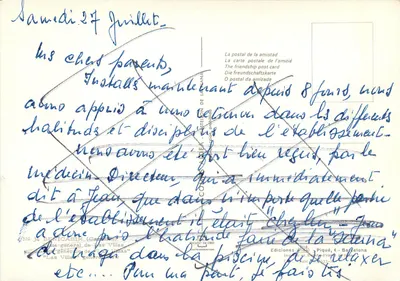 Samedi 27 Juillet.
Mes chers parents,
Installés maintenant depuis 8 jours, nous
avons appris à nous retrouver dans les différents
habitudes et disciplines de l'établissement.
Nous avons été fort bien reçus, par le
médecin Directeur, qui a immédiatement
dit à Jean, que dans n'importe quelle partie
de l'établissement il était "chez lui" - Jean
a donc pris l'habitude de
de nager dans la piscine, de se relaxer
etc.... Pour ma part, je fais les
La postal de la amistad
La carte postale de l'amitié
The friendship post card
Die Freundschaftskarte